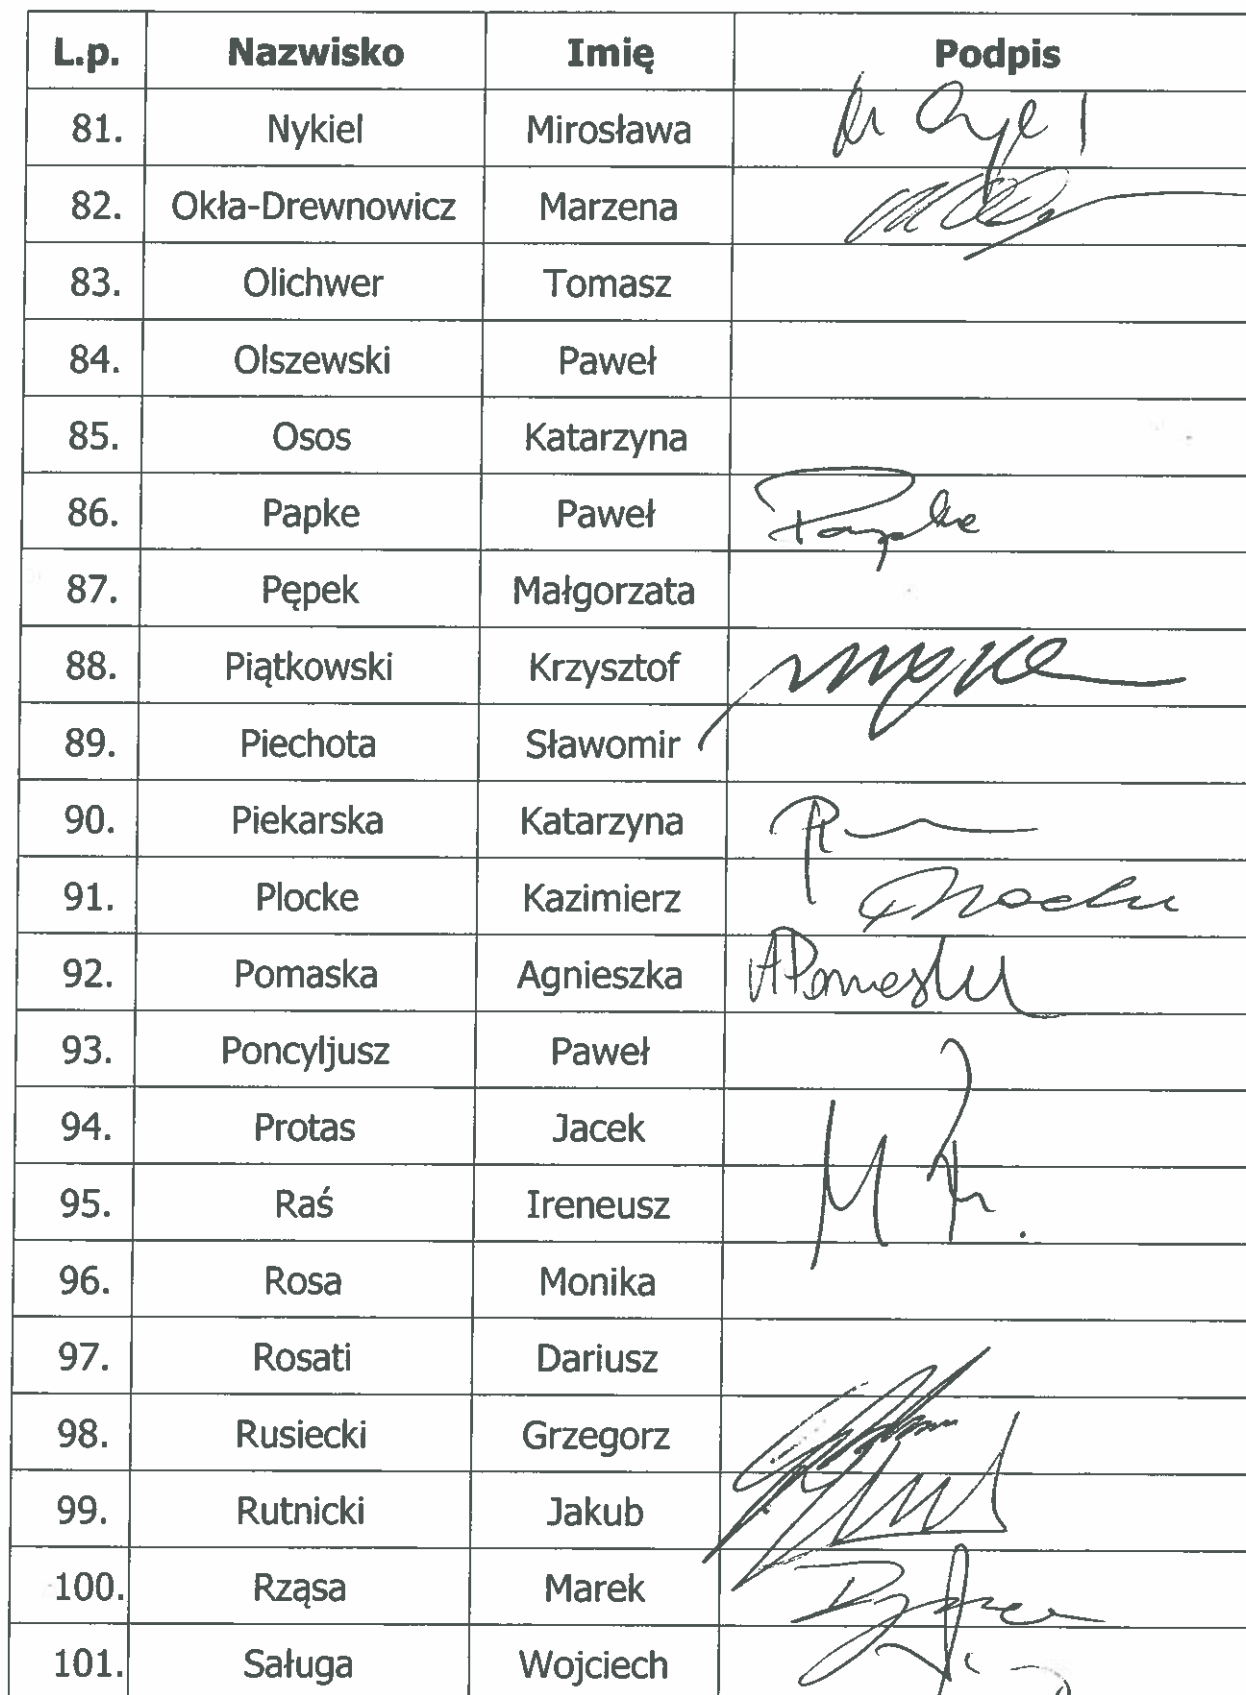 L.p. Nazwisko Imię Podpis
81. Nykiel Mirosława
82. Okła-Drewnowicz Marzena
83. Olichwer Tomasz
84. Olszewski Paweł
85. Osos Katarzyna
86. Papke Paweł Papke
87. Pępek Małgorzata
88. Piątkowski Krzysztof
89. Piechota Sławomir
90. Piekarska Katarzyna
91. Plocke Kazimierz
92. Pomaska Agnieszka APomaska
93. Poncyljusz Paweł
94. Protas Jacek
95. Raś Ireneusz
96. Rosa Monika
97. Rosati Dariusz
98. Rusiecki Grzegorz
99. Rutnicki Jakub
100. Rząsa Marek
101. Saługa Wojciech